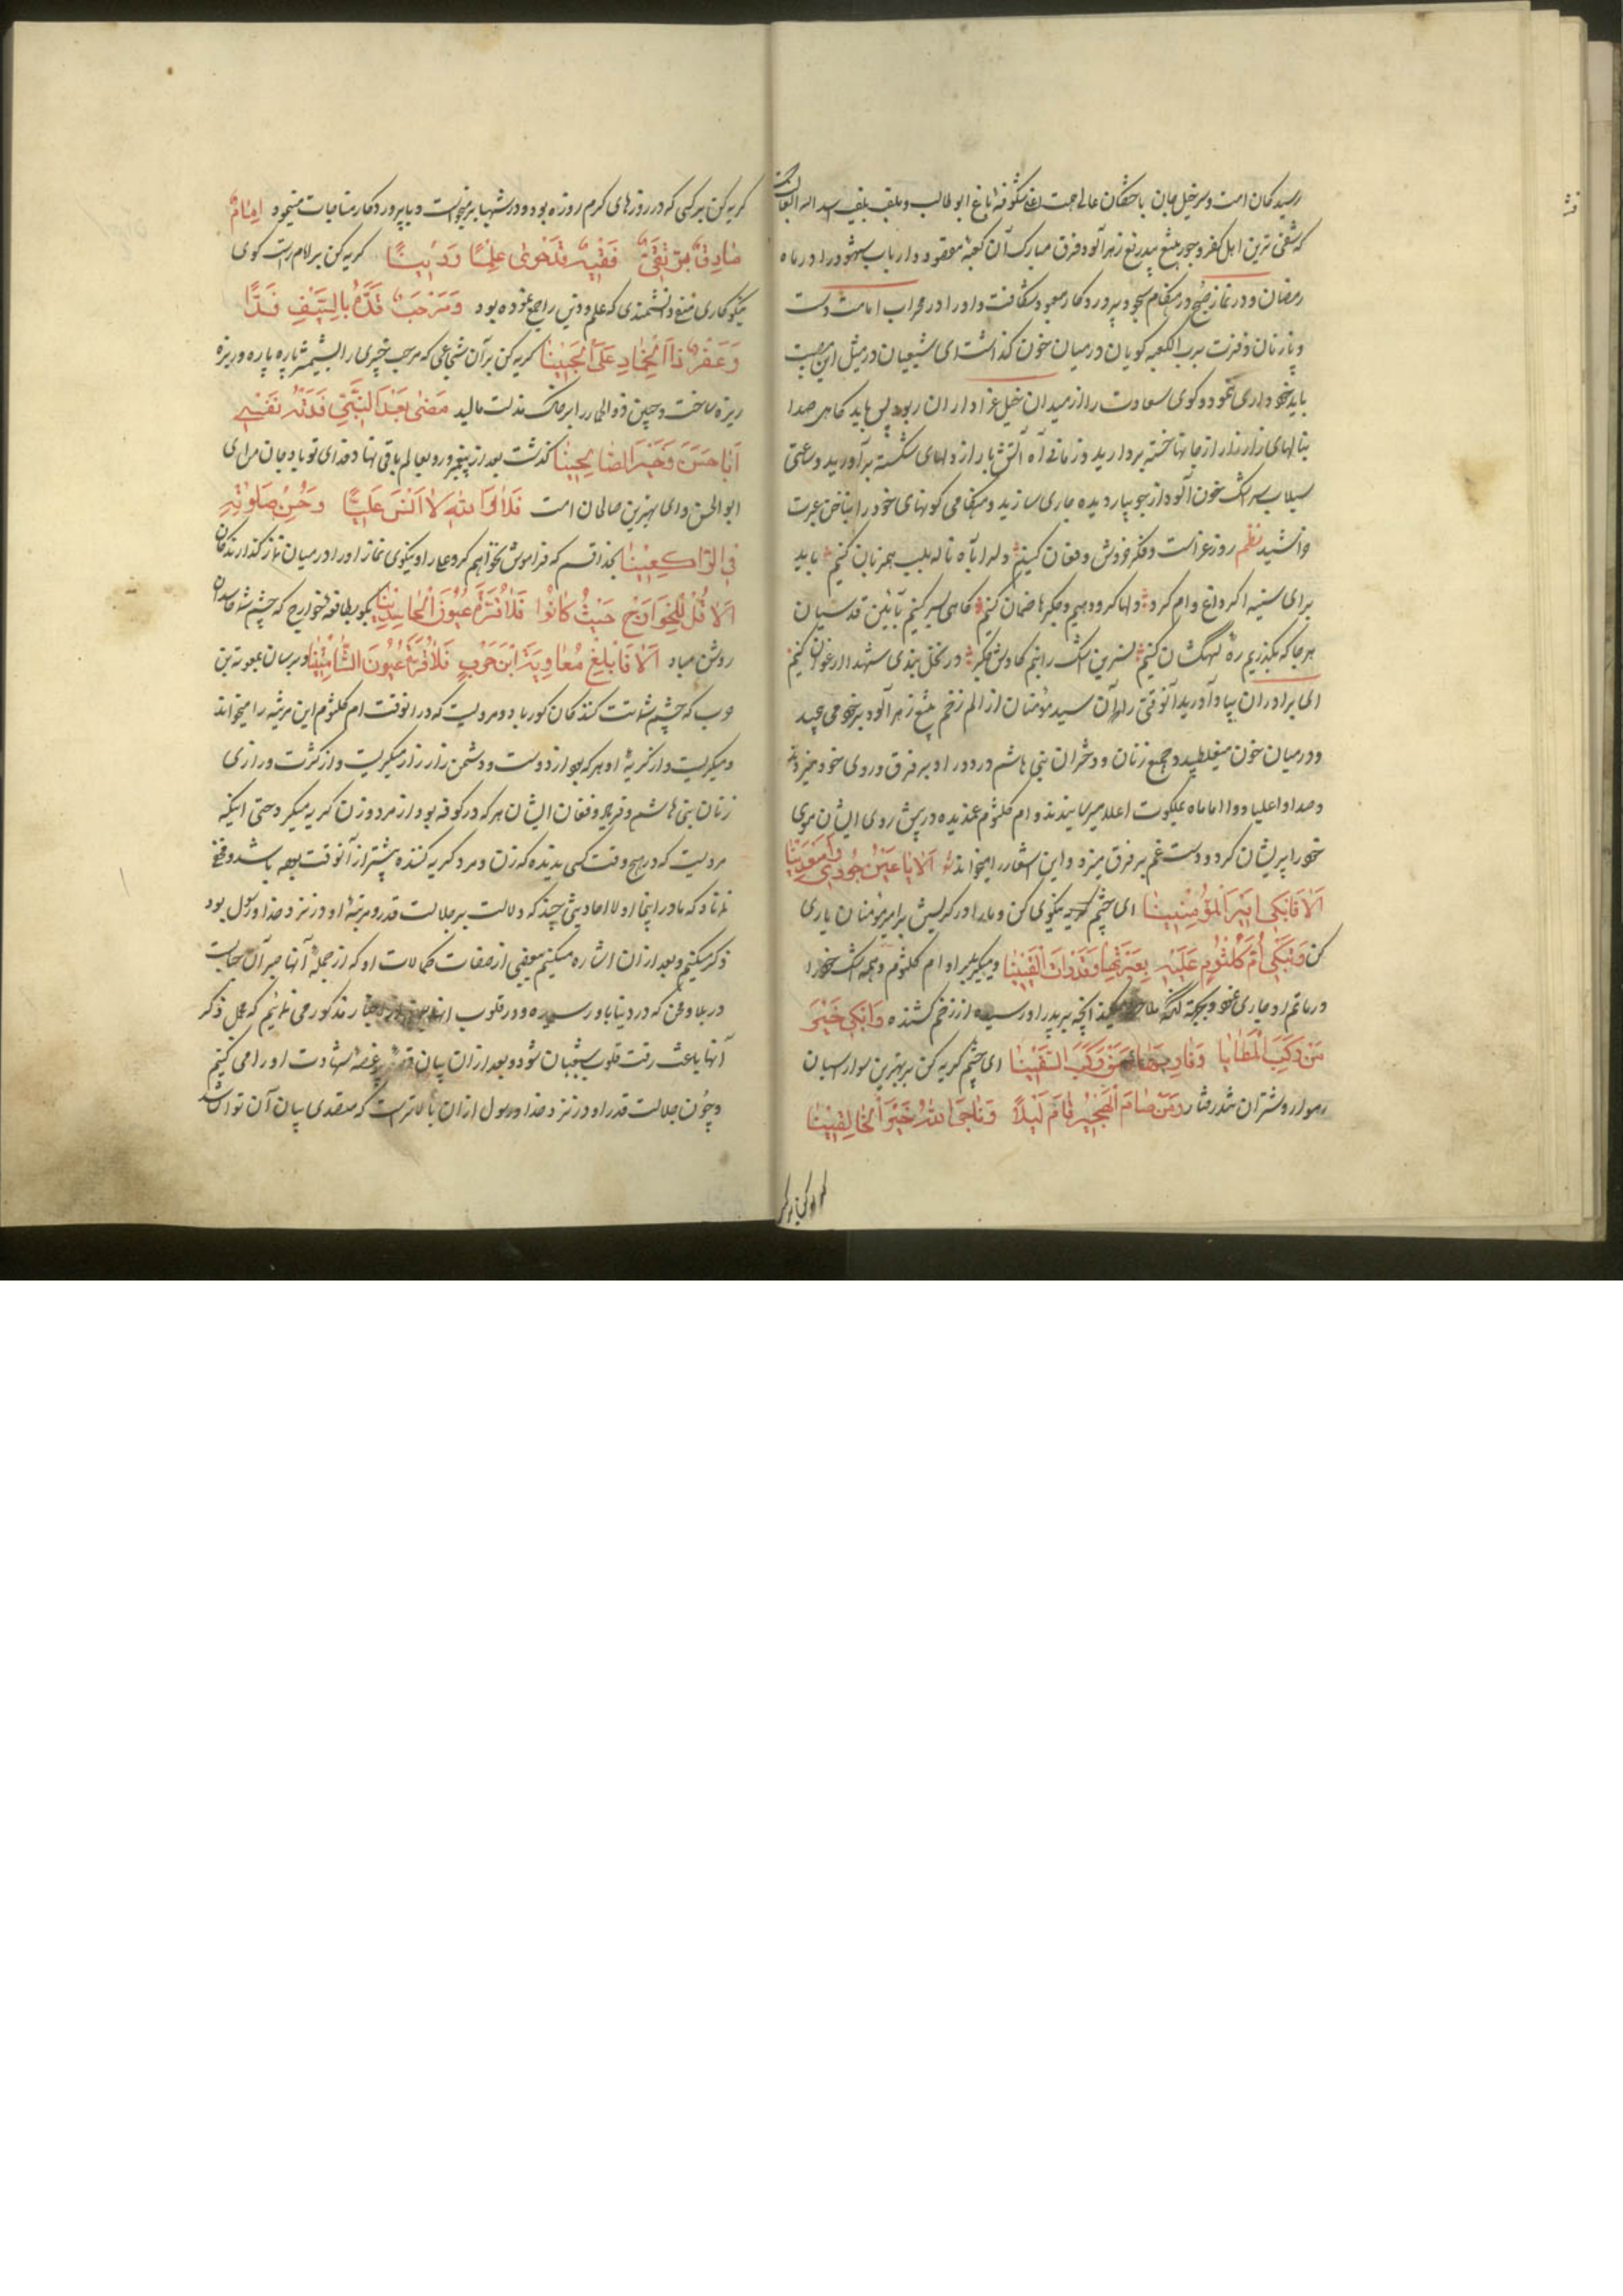 رسید کمان امت و سرخیل جان باختکان عالم محبت اعنی شکوفه باغ ابو طالب
که شقی ترین اهل کفر و جور بتیغ بیدریغ زهر آلود فرق مبارک آن کعبه مقصود و ارباب شهود را در ماه
رمضان و در نماز صبح در هنگام سجود پروردکار معبود شکافت و او را در محراب امامت دست
و پا زنان و فزت برب الکعبه کویان در میان خون کذاشت ای شیعیان در مثل این مصیبت
باید خود داری ننمود و کوی سعادت را از میدان خیل عزاداران ربود پس باید کاهی صدا
بنالهای زار زار از جانها خسته بردارید و زمانی آه آتش بار از دلهای شکسته برآورید و ساعتی
سیلاب سرشک خون آلود از جویبار دیده جاری سازید و هنکامی کونهای خود را بناخن عبرت
خراشید نظم روز عزاست و فکر خروش و فغان کنیم دلها بآه ناله بلب همزبان کنیم باید
برای سینه اکر داغ وام کرد دلها کرو دهیم و جکرها ضمان کنیم کاهی بسر کنیم بآئین قدسیان
هر جا که بکذریم ره کهکشان کنیم نسرین اشک را بنم کاوش جکر در نخل بندی شهدا ارغوان کنیم
ای برادران بیاد آورید آنوقتی را که آن سید مؤمنان از الم زخم تیغ زهر آلود بر خود می پیچید
و در میان خون میغلطید و جمیع زنان و دختران بنی هاشم در دور او بر فرق و روی خود میزدند
و صدا و اعلیا و وا اماماه بملکوت اعلا میرسانیدند و ام کلثوم غمدیده در پیش روی ایشان موی
خود را پریشان کرد و دست غم بر فرق میزد و این اشعار را میخواند الا یا عین جودی و اسعدینا
الا فابکی امیر المؤمنینا ای چشم کریه نیکوی کن و مدد کریش بر امیر مؤمنان یاری
کن و تبکی ام کلثوم علیه بعبرتها و قد رات الیقینا و میکرید بر او ام کلثوم و همه اشک خود را
در ماتم او جاری نمود بجهة آنکه ملاحظه میکند آنچه بر پدر او رسیده از زخم کشنده و ابکی خیر
من رکب المطایا و فارسها و من رکب السفینا ای چشم کریه کن بر بهترین سوار اسبان
رهوار و شتران تند رفتار و من صام الهجیر و قام لیلا و ناجی الله خیر الخالقینا
کریه کن بر کسی که در روزهای کرم روزه بود و در شبها بر میخواست و با پروردکار مناجات مینمود امام
صادق بر تقی فقیه قد حوی علما و دینا کریه کن بر امام راست کوی
نیکو کاری متقی دانشمندی که علم و دین را جمع نموده بود و مرحب قده بالسیف قدا
و عفر ذا الخمار علی الجبینا کریه کن بر آن شجاعی که مرحب خیبری را بشمشیر پاره پاره و ریزه
ریزه ساخت و جبین ذو الخمار را بر خاک مذلت مالید مضی بعد النبی فدته نفسی
ابا حسن و خیر الصالحینا کذشت بعد از پیغمبر و رو بعالم باقی نهاد فدای تو باد جان من ای
ابو الحسن و ای بهترین صالحان امت فلا والله لا انسی علیا و حسن صلوته
فی الراکعینا بخدا قسم که فراموش نخواهم کرد علی را و نیکوی نماز او را در میان نماز کذارندکان
الا قل للخوارج حیث کانوا فلا قرت عیون الحاسدینا بکو بطایفه خوارج که چشم حاسدان
روشن مباد الا فابلغ معاویة ابن حرب فلا قرت عیون الشامتینا و برسان بمعویة بن
حرب که چشم شماتت کنندکان کور باد و مرویست که در آنوقت ام کلثوم این مرثیه را میخواند
و میکریست و از کریهٔ او هر که بود از دوست و دشمن زار زار میکریست و از کثرت و زاری
زنان بنی هاشم و نوحه و فغان ایشان هر که در کوفه بود از مرد و زن کریه میکرد حتی اینکه
مرویست که در هیچ وقت کسی ندیده که زن و مرد کریه کننده بیشتر از آنوقت بوده باشد و مخفی
نماناد که ما در اینجا اولا احادیثی چند که دلالت بر جلالت قدر و مرتبهٔ او در نزد خدا و رسول بود
ذکر میکنیم و بعد از آن اشاره میکنیم ببعضی از صفات کمالات او که از جمله آنها صبر آن جنابست
در بلا و محن که در دنیا باو رسیده و در قلوب مذکور می نمائیم که محل ذکر
آنها باعث رقت قلوب شیعیان شود و بعد از آن بیان قصه پر غصهٔ شهادت او را می کنیم
و چون جلالت قدر او در نزد خدا و رسول از آن بالاتر است که متصدی بیان آن توان شد